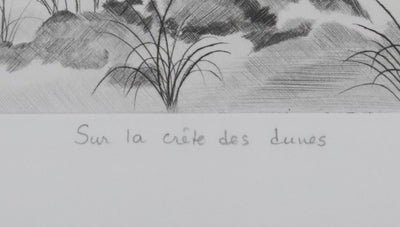 Sur la crête des dunes